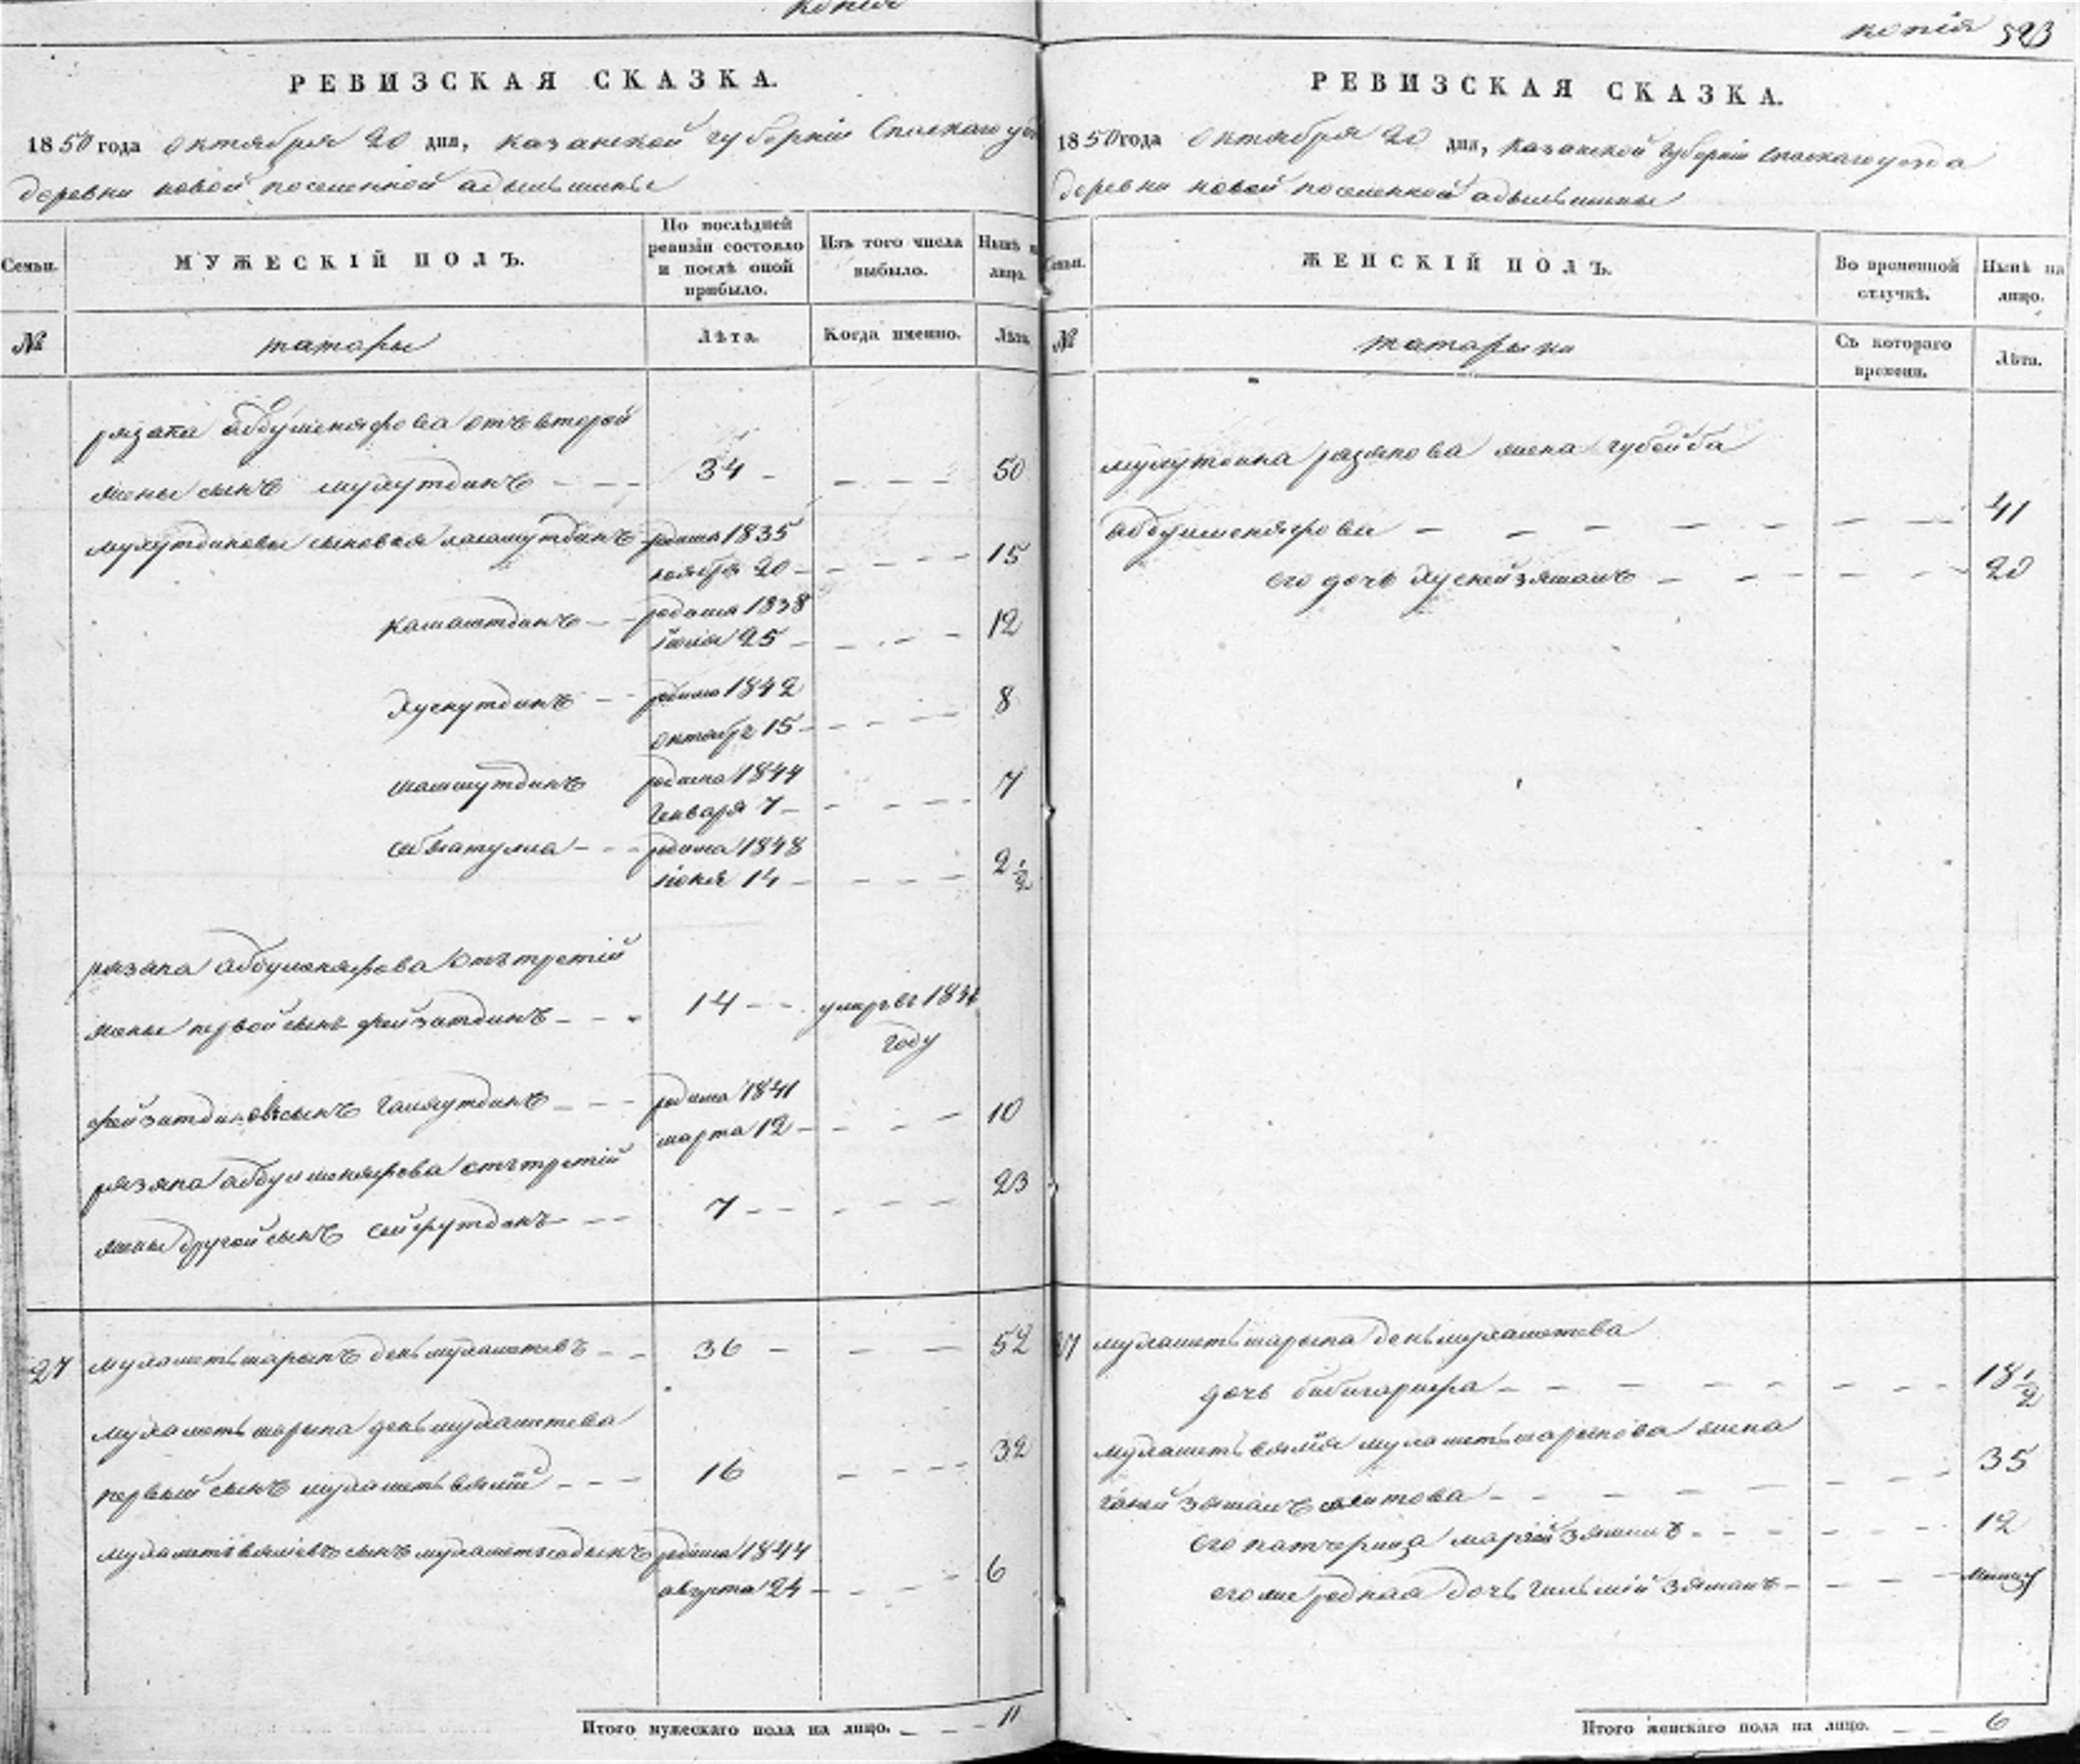 копія
РЕВИЗСКАЯ СКАЗКА.
1850 года октября 20 дня, казанской губерніи Спаскаго
деревни новой поселенной адыльшины
Семьи. МУЖЕСКІЙ ПОЛЪ. По послѣдней ревизіи состояло и послѣ оной прибыло. Изъ того числа выбыло. Нынѣ лицо.
№ татары Лѣта. Когда именно. Лѣта.
рязапа абдулменяфова отъ второй
жены сынъ мухутдинъ 34 50
мухутдиновы сыновья 1835 15
ноября 20
камалтдинъ родился 1838 12
іюля 25
хуснутдинъ родился 1842 8
октября 15
шамсутдинъ родился 1844 7
генваря 7
родился 1848 2 1/2
іюня 14
абдулменяфова отъ третій
жены первой сынъ фейзатдинъ 14 умре въ
году
фейзатдиновъ сынъ родился 1841 10
марта 12
абдулменяфова отъ третій
жены другой сынъ сайфутдинъ 7 23
27 мухаметьшарыпъ деньмухаметевъ 36 52
мухаметьшарыпа деньмухаметева
первый сынъ мухаметьвялій 16 32
мухаметьвяліевъ сынъ мухаметьсадыкъ родился 1844 6
августа 24
Итого мужескаго пола на лицо. 11
копія 523
РЕВИЗСКАЯ СКАЗКА.
1850 года октября 20 дня, казанской губерніи спаскаго уезда
деревни новой поселенной адыльшины
Семьи. ЖЕНСКІЙ ПОЛЪ. Во временной отлучкѣ. Нынѣ на лицо.
№ татарыки Съ котораго времени. Лѣта.
мухутдина жена губейба
абдулменяфова 41
его дочь хуснейзямалъ 20
27 мухаметьшарыпа деньмухаметева
дочь бибигарифа 18 1/2
мухаметьвялія мухаметьшарыпова жена
зямалъ сеитова 35
его патчерица зямалъ 12
его же родная дочь зямалъ
Итого женскаго пола на лицо. 6